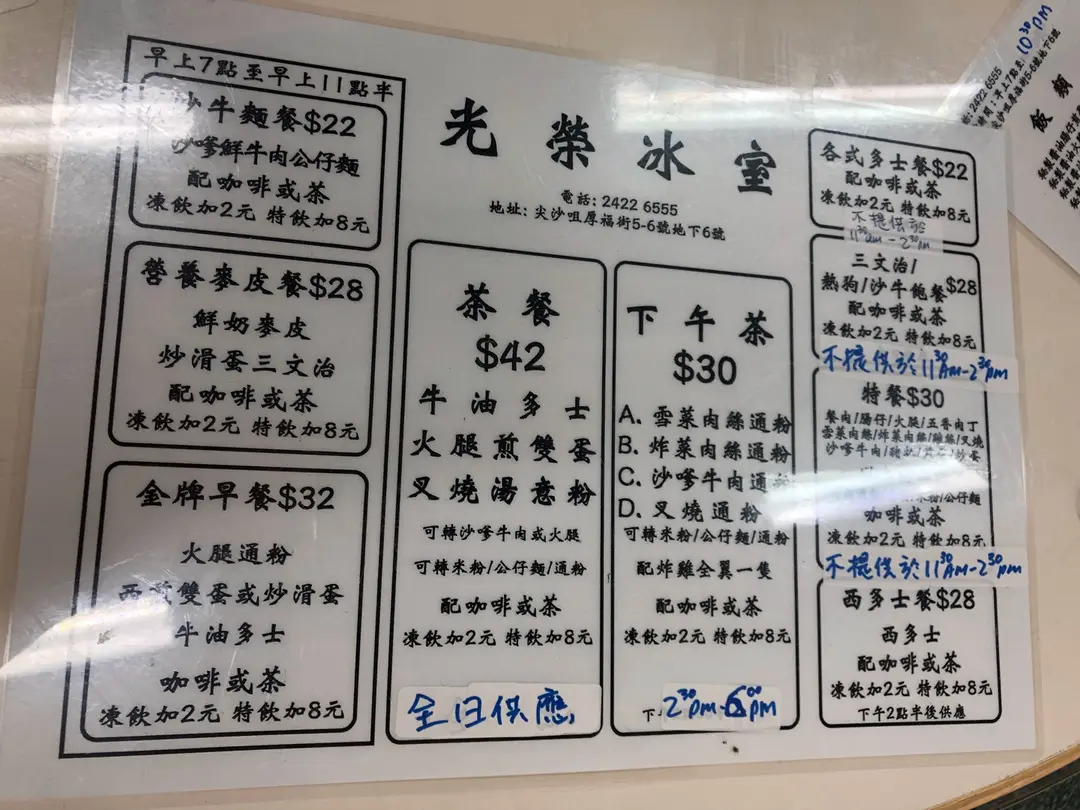 早上7點至早上11點半
沙牛麵餐$22
沙嗲鮮牛肉公仔麵
配咖啡或茶
凍飲加2元 特飲加8元
營養麥皮餐$28
鮮奶麥皮
炒滑蛋三文治
配咖啡或茶
凍飲加2元 特飲加8元
金牌早餐$32
火腿通粉
西煎雙蛋或炒滑蛋
牛油多士
咖啡或茶
凍飲加2元 特飲加8元
光榮冰室
電話: 2422 6555
地址: 尖沙咀厚福街5-6號地下6號
茶餐
$42
牛油多士
火腿煎雙蛋
叉燒湯意粉
可轉沙嗲牛肉或火腿
可轉米粉/公仔麵/通粉
配咖啡或茶
凍飲加2元 特飲加8元
全日供應
下午茶
$30
A. 雪菜肉絲通粉
B. 炸菜肉絲通粉
C. 沙嗲牛肉通粉
D. 叉燒通粉
可轉米粉/公仔麵/通粉
配炸雞全翼一隻
配咖啡或茶
凍飲加2元 特飲加8元
下 2:30pm-6:00pm
各式多士餐$22
配咖啡或茶
凍飲加2元 特飲加8元
不提供於
11:30am-2:30pm
三文治/
熱狗/沙牛飽餐$28
配咖啡或茶
凍飲加2元 特飲加8元
不提供於11:30AM-2:30pm
特餐$30
餐肉/腸仔/火腿/五香肉丁
雪菜肉絲/炸菜肉絲/雞絲/叉燒
沙嗲牛肉
米粉/公仔麵
咖啡或茶
凍飲加2元 特飲加8元
不提供於11:30AM-2:30pm
西多士餐$28
西多士
配咖啡或茶
凍飲加2元 特飲加8元
下午2點半後供應
10:30pm
2422 6555
早上7點至
厚福街5-6號地下6號
飯 類